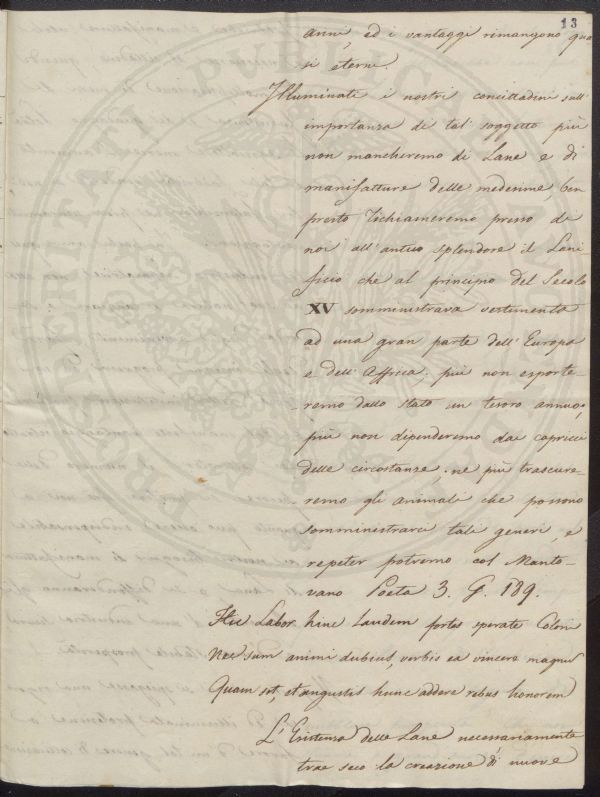 13
anni, ed i vantaggi rimangono qua
si eterni.
Illuminati i nostri concittadini sull'
importanza di tal' soggetto più
non mancheremo di Lane e di
manifatture delle medesime, ben
presto richiameremo presso di
noi all' antico splendore il Lani
ficio che al principio del Secolo
XV somministrava vestimenta
ad una gran parte dell' Europa
e dell' Affrica; più non esporte
remo dallo stato un tesoro annuo;
più non dipenderemo dai capricci
delle circostanze; ne più trascure
remo gli animali che possono
somministrarci tali generi, e
repeter potremo col Manto
vano Poeta 3. G. 189.
Hic Labor hinc Laudem fortes sperate Coloni
Nec sum animi dubius, verbis ea vincere magnum
Quam sit, et angustis hunc addere rebus honorem
L' Esistenza delle Lane necessariamente
trae seco la creazione di nuove